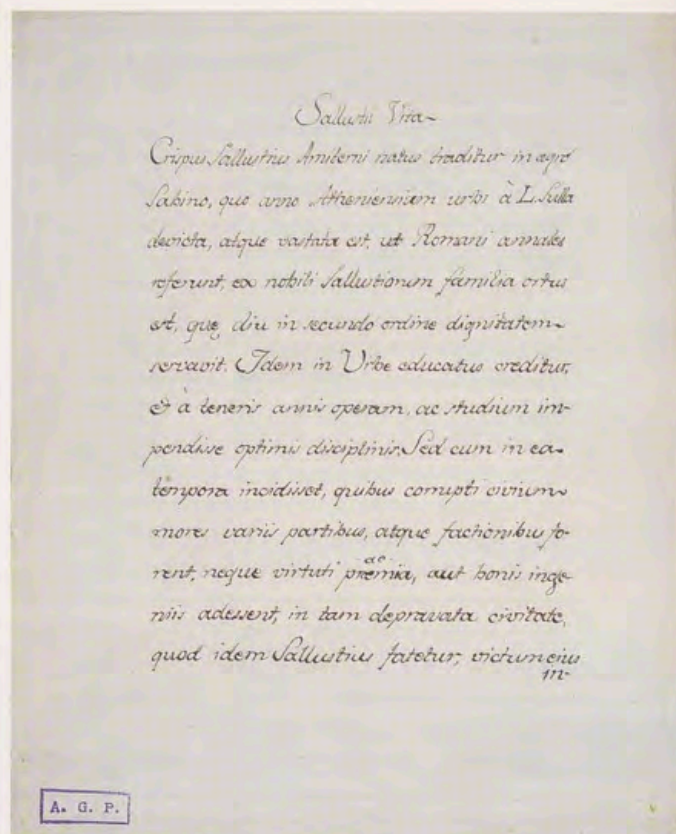 Sallustii Vita
Crispus Sallustius Amiterni natus traditur in agro
Sabino, quo anno Atheniensium urbs à L. Sulla
devicta, atque vastata est, ut Romani annales
referunt, ex nobili Sallustiorum familia ortus
est, quę diu in secundo ordine dignitatem
servavit. Idem in Urbe educatus creditur,
& à teneris annis operam, ac studium im-
pendisse optimis disciplinis. Sed cum in ea
tempora incidisset, quibus corrupti civium
mores variis partibus, atque factionibus fo-
rent, neque virtuti praemia, aut bonis inge-
niis adessent, in tam depravata civitate,
quod idem Sallustius fatetur, victum eius
in-
A. G. P.